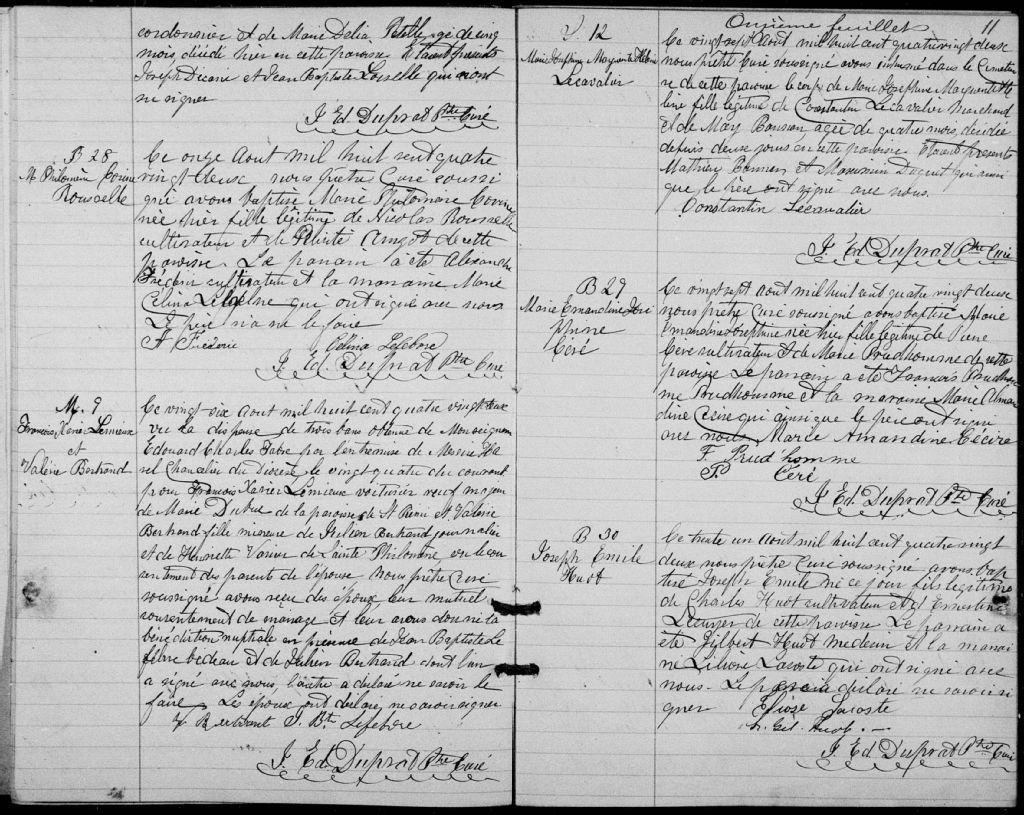 cordonnier et de Marie Delia Petelle, agé de cinq
mois, décédé hier en cette paroisse Etaient présents
Joseph Dicaire et Jean Baptiste Loiselle qui n'ont
su signer
J. Ed. Duprat Ptre Curé
B 28
M Philomène Corine
Rousselle
Ce onze Aout mil huit cent quatre
vingt deux nous prêtre Curé soussi
gné avons baptisé Marie Philomene Corine
née hier fille légitime de Nicolas Rousselle
cultivateur et de Félicité Amyot de cette
paroisse. Le parrain a été Alexandre
Fréderic cultivateur et la marraine Marie
Celina Lefebvre qui ont signé avec nous
Le père n'a su le faire
A Fréderic Célina Lefebvre
J. Ed. Duprat Ptre Curé
M. 9
François Xavier Lemieux
et
Valérie Bertrand
Ce vingt six aout mil huit cent quatre vingt deux
vu la dispense de trois bans obtenue de Monseigneur
Edouard Charles Fabre par l'entremise de Messire Ha
rel Chancelier du Diocèse le vingt quatre du courant
pour François Xavier Lemieux voiturier veuf majeur
de Marie Dubuc de la paroisse de St Remi et Valérie
Bertrand fille mineure de Julien Bertrand journalier
et de Henriette Vanier de Sainte Philomène, vu le con
sentement des parents de l'épouse Nous prêtre Curé
soussigné avons reçu des époux leur mutuel
consentement de mariage et leur avons donné la
bénédiction nuptiale en présence de Jean Baptiste Le
febvre bedeau et de Julien Bertrand dont l'un
a signé avec nous, l'autre a déclaré ne savoir le
faire. Les époux ont déclaré ne savoir signer
J. Bte Lefebvre
J. Ed. Duprat Ptre Curé
Onzième feuillet 11
S. 12
Marie Josephine Marguerite Hélène
Lecavalier
Ce vingt sept Aout mil huit cent quatre vingt deux
nous prêtre Curé soussigné avons inhumé dans le Cimetiè
re de cette paroisse le corps de Marie Josephine Marguerite Hé
lène fille légitime de Constantin Lecavalier marchand
et de Mary agée de quatre mois, décédée
depuis deux jours en cette paroisse. Etaient présents
Mathieu et Doquet qui ainsi
que le père ont signé avec nous.
Constantin Lecavalier
J. Ed Duprat Ptre Curé
B 29
Marie Emandine José
phine
Céré
Ce vingt sept Aout mil huit cent quatre vingt deux
nous prêtre Curé soussigné avons baptisé Marie
Emandine Josephine née hier fille légitime de Pierre
Céré cultivateur et de Marie Prudhomme de cette
paroisse Le parrain a été François Prudhom
me Prudhomme et la marraine Marie Aman
dine Cécire qui ainsi que le père ont signé
avec nous Marie Amandine Cécire
F Prud'homme
P. Ceré
J. Ed. Duprat Ptre Curé
B 30
Joseph Emile
Huot
Ce trente un Aout mil huit cent quatre vingt
deux nous prêtre Curé soussigné avons bap
tisé Joseph Emile né ce jour fils légitime
de Charles Huot cultivateur et d'Ernestine
Lécuyer de cette paroisse Le parrain a
été Gilbert Huot médecin et la marrai
ne Lacoste qui ont signé avec
nous. Le père a déclaré ne savoir si
gner Elise Lacoste
h. Gil. Huot.
J. Ed. Duprat Ptre Curé